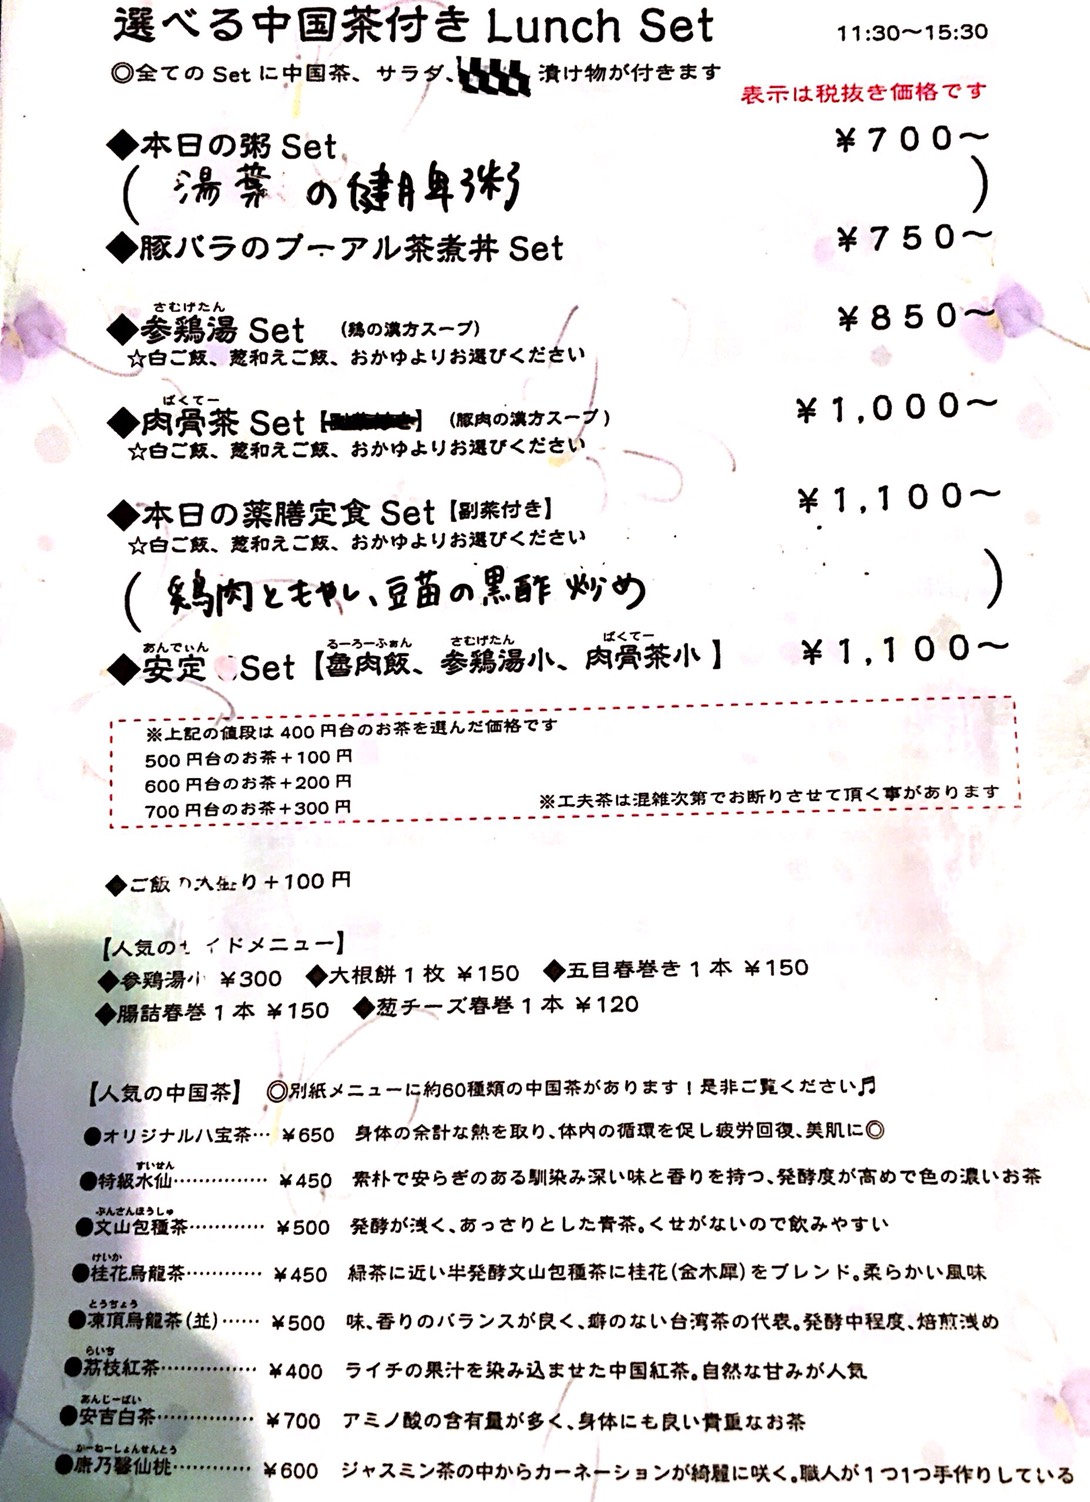 選べる中国茶付き Lunch Set 11:30〜15:30
◎全ての Set に中国茶、サラダ、 漬け物が付きます
表示は税抜き価格です
◆本日の粥 Set ¥700〜
( 湯葉 の健脾粥 )
◆豚バラのプーアル茶煮丼 Set ¥750〜
さむげたん
◆参鶏湯 Set (鶏の漢方スープ) ¥850〜
☆白ご飯、葱和えご飯、おかゆよりお選びください
ばくてー
◆肉骨茶 Set【 】 (豚肉の漢方スープ) ¥1,000〜
☆白ご飯、葱和えご飯、おかゆよりお選びください
◆本日の薬膳定食 Set【副菜付き】 ¥1,100〜
☆白ご飯、葱和えご飯、おかゆよりお選びください
( 鶏肉ともやし、豆苗の黒酢 炒め )
あんでぃん るーろーふぁん さむげたん ばくてー
◆安定 Set【魯肉飯、参鶏湯小、肉骨茶小】 ¥1,100〜
※上記の値段は 400 円台のお茶を選んだ価格です
500 円台のお茶+100 円
600 円台のお茶+200 円
700 円台のお茶+300 円 ※工夫茶は混雑次第でお断りさせて頂く事があります
◆ご飯の大盛り+100 円
【人気のサイドメニュー】
◆参鶏湯小 ¥300 ◆大根餅 1 枚 ¥150 ◆五目春巻き 1 本 ¥150
◆腸詰春巻 1 本 ¥150 ◆葱チーズ春巻 1 本 ¥120
【人気の中国茶】 ◎別紙メニューに約60種類の中国茶があります！是非ご覧ください♬
●オリジナル八宝茶… ¥650 身体の余計な熱を取り、体内の循環を促し疲労回復、美肌に◎
すいせん
●特級水仙…………… ¥450 素朴で安らぎのある馴染み深い味と香りを持つ、発酵度が高めで色の濃いお茶
ぶんさんほうしゅ
●文山包種茶………… ¥500 発酵が浅く、あっさりとした青茶。くせがないので飲みやすい
けいか
●桂花烏龍茶………… ¥450 緑茶に近い半発酵文山包種茶に桂花(金木犀)をブレンド。柔らかい風味
とうちょう
●凍頂烏龍茶(並)…… ¥500 味、香りのバランスが良く、癖のない台湾茶の代表。発酵中程度、焙煎浅め
らいち
●茘枝紅茶…………… ¥400 ライチの果汁を染み込ませた中国紅茶。自然な甘みが人気
あんじーばい
●安吉白茶…………… ¥700 アミノ酸の含有量が多く、身体にも良い貴重なお茶
かーねーしょんせんとう
●康乃馨仙桃………… ¥600 ジャスミン茶の中からカーネーションが綺麗に咲く。職人が1つ1つ手作りしている